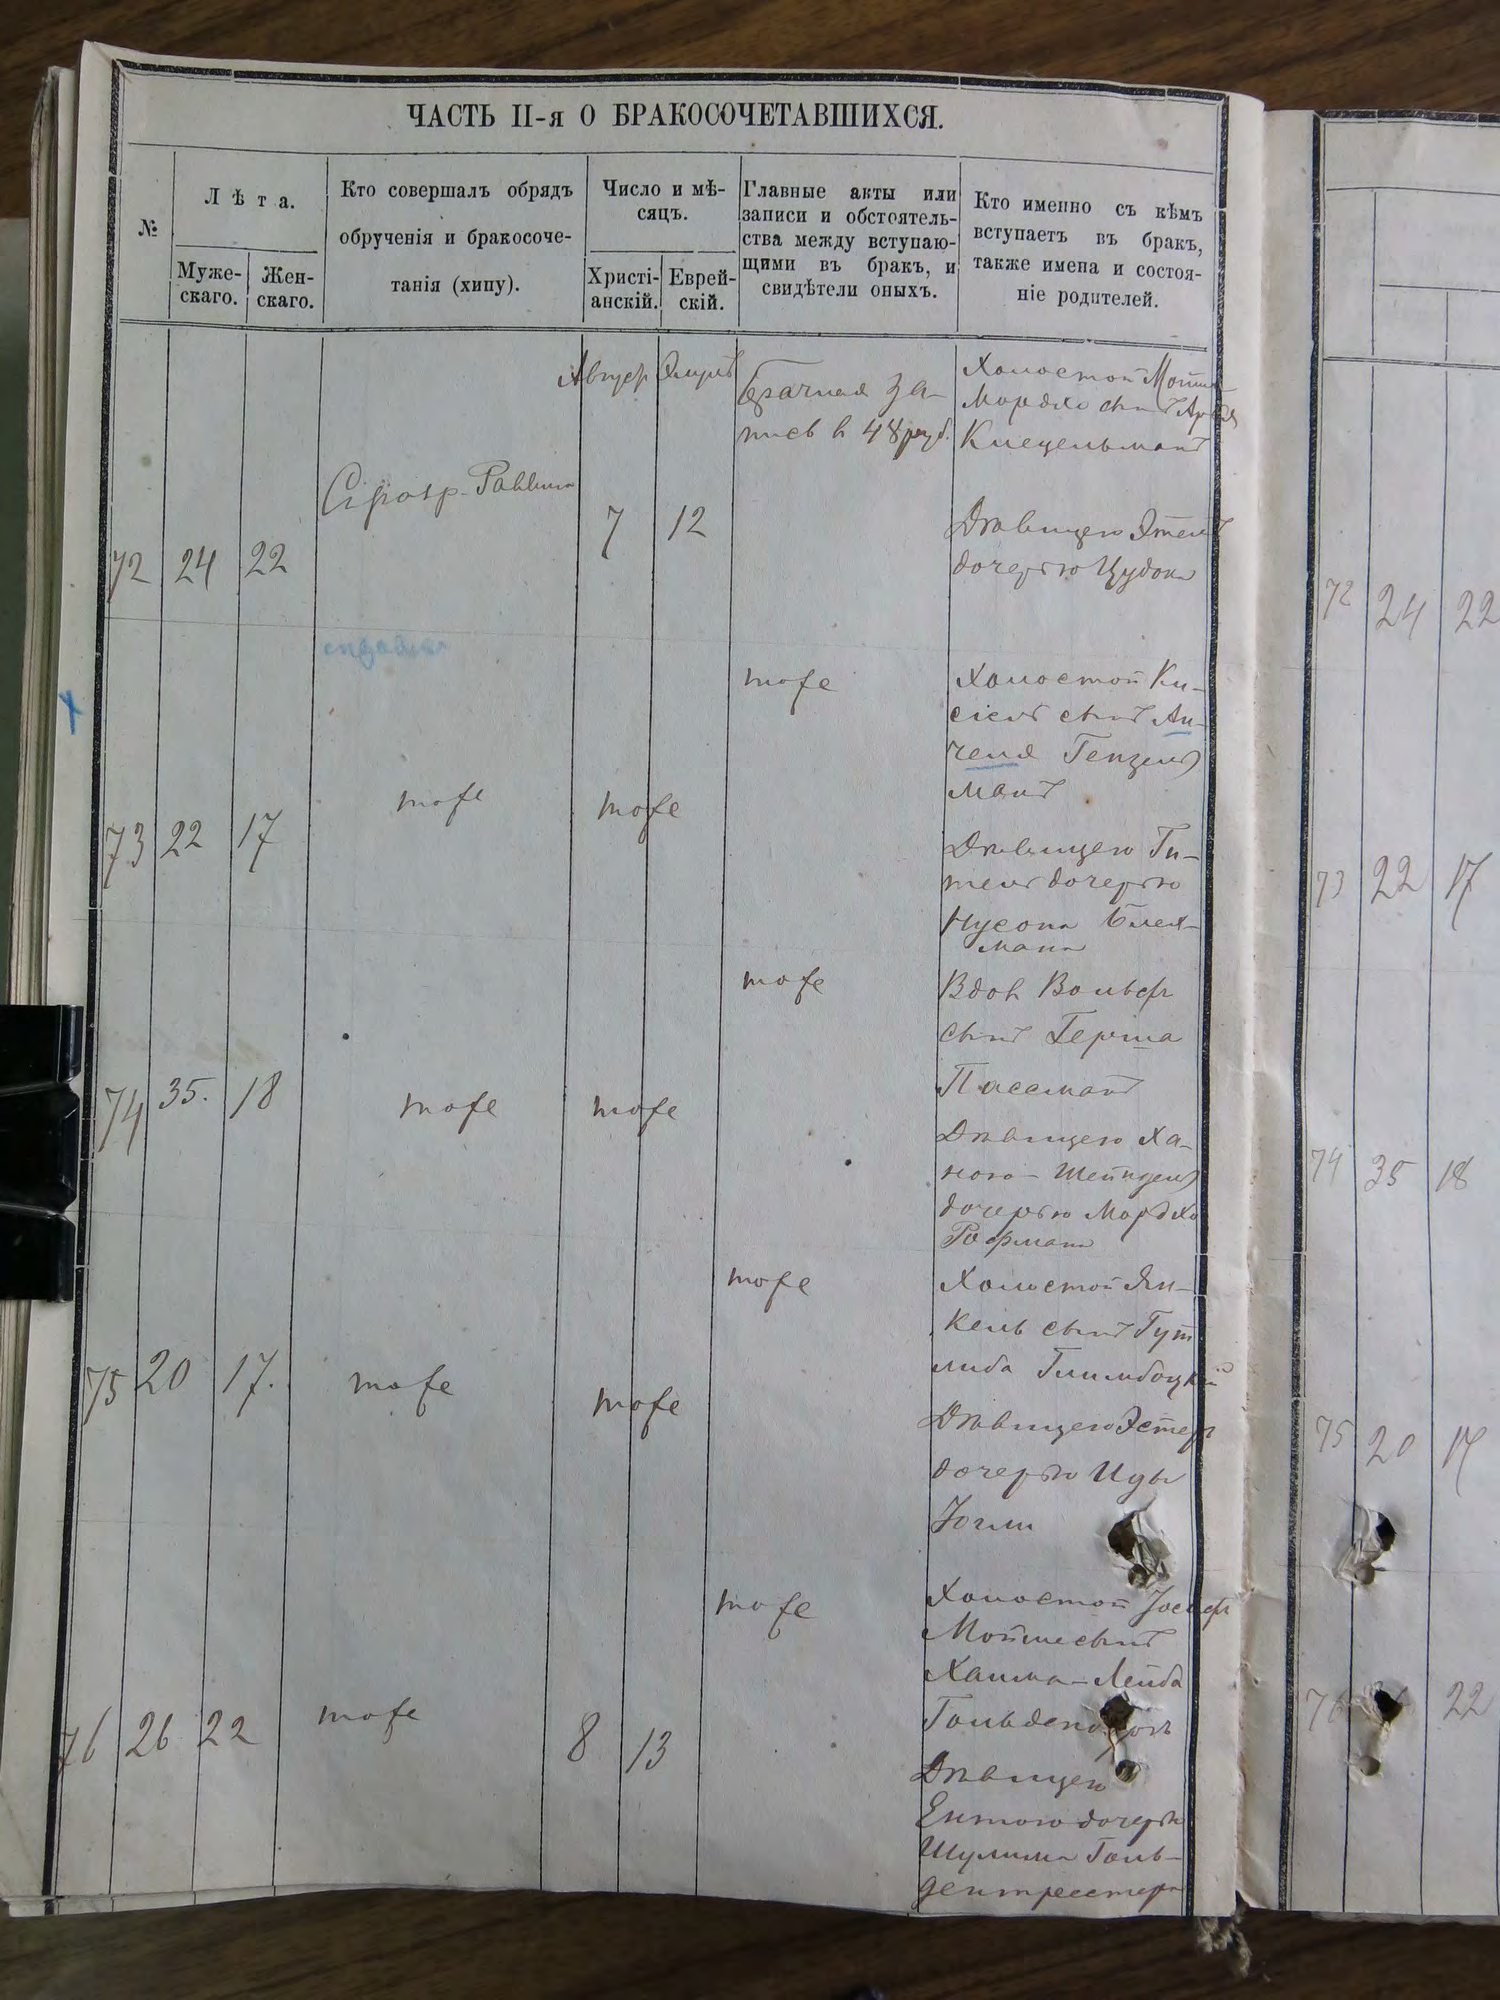 ЧАСТЬ II-я О БРАКОСОЧЕТАВШИХСЯ.
№
Лѣта.
Муже-
скаго.
Жен-
скаго.
Кто совершалъ обрядъ
обрученія и бракосоче-
танія (хипу).
Число и мѣ-
сяцъ.
Христі-
анскій.
Еврей-
скій.
Главные акты или
записи и обстоятель-
ства между вступаю-
щими въ бракъ, и
свидѣтели оныхъ.
Кто именно съ кѣмъ
вступаетъ въ бракъ,
также имена и состоя-
ніе родителей.
72 24 22
Раввинъ
7 12
Брачная за-
пись в 48 руб.
Холостой
Мордхо сынъ
Дѣвицею
дочерью
73 22 17
тоже
тоже
тоже
Холостой Ки-
сіель сынъ Ан-
челя Гензель
манъ
Дѣвицею Ги-
тель дочерью
Нусона Блех-
мана
74 35. 18
тоже
тоже
тоже
Вдов Вольф
сынъ Герша
Пассманъ
Дѣвицею Ха-
ною-Шейндель
дочерью Мордхо
Рофмана
75 20 17.
тоже
тоже
тоже
Холостой Ян-
кель сынъ Гут
либа
Дѣвицею Эстер
дочерью Иды
76 26 22
тоже
8 13
тоже
Холостой Іосиф
Мойше сынъ
Хаима-Лейба
Дѣвицею
Ентою дочерью
Шулима Голь-
72 24 22
73 22 17
74 35 18
75 20 17
76 22